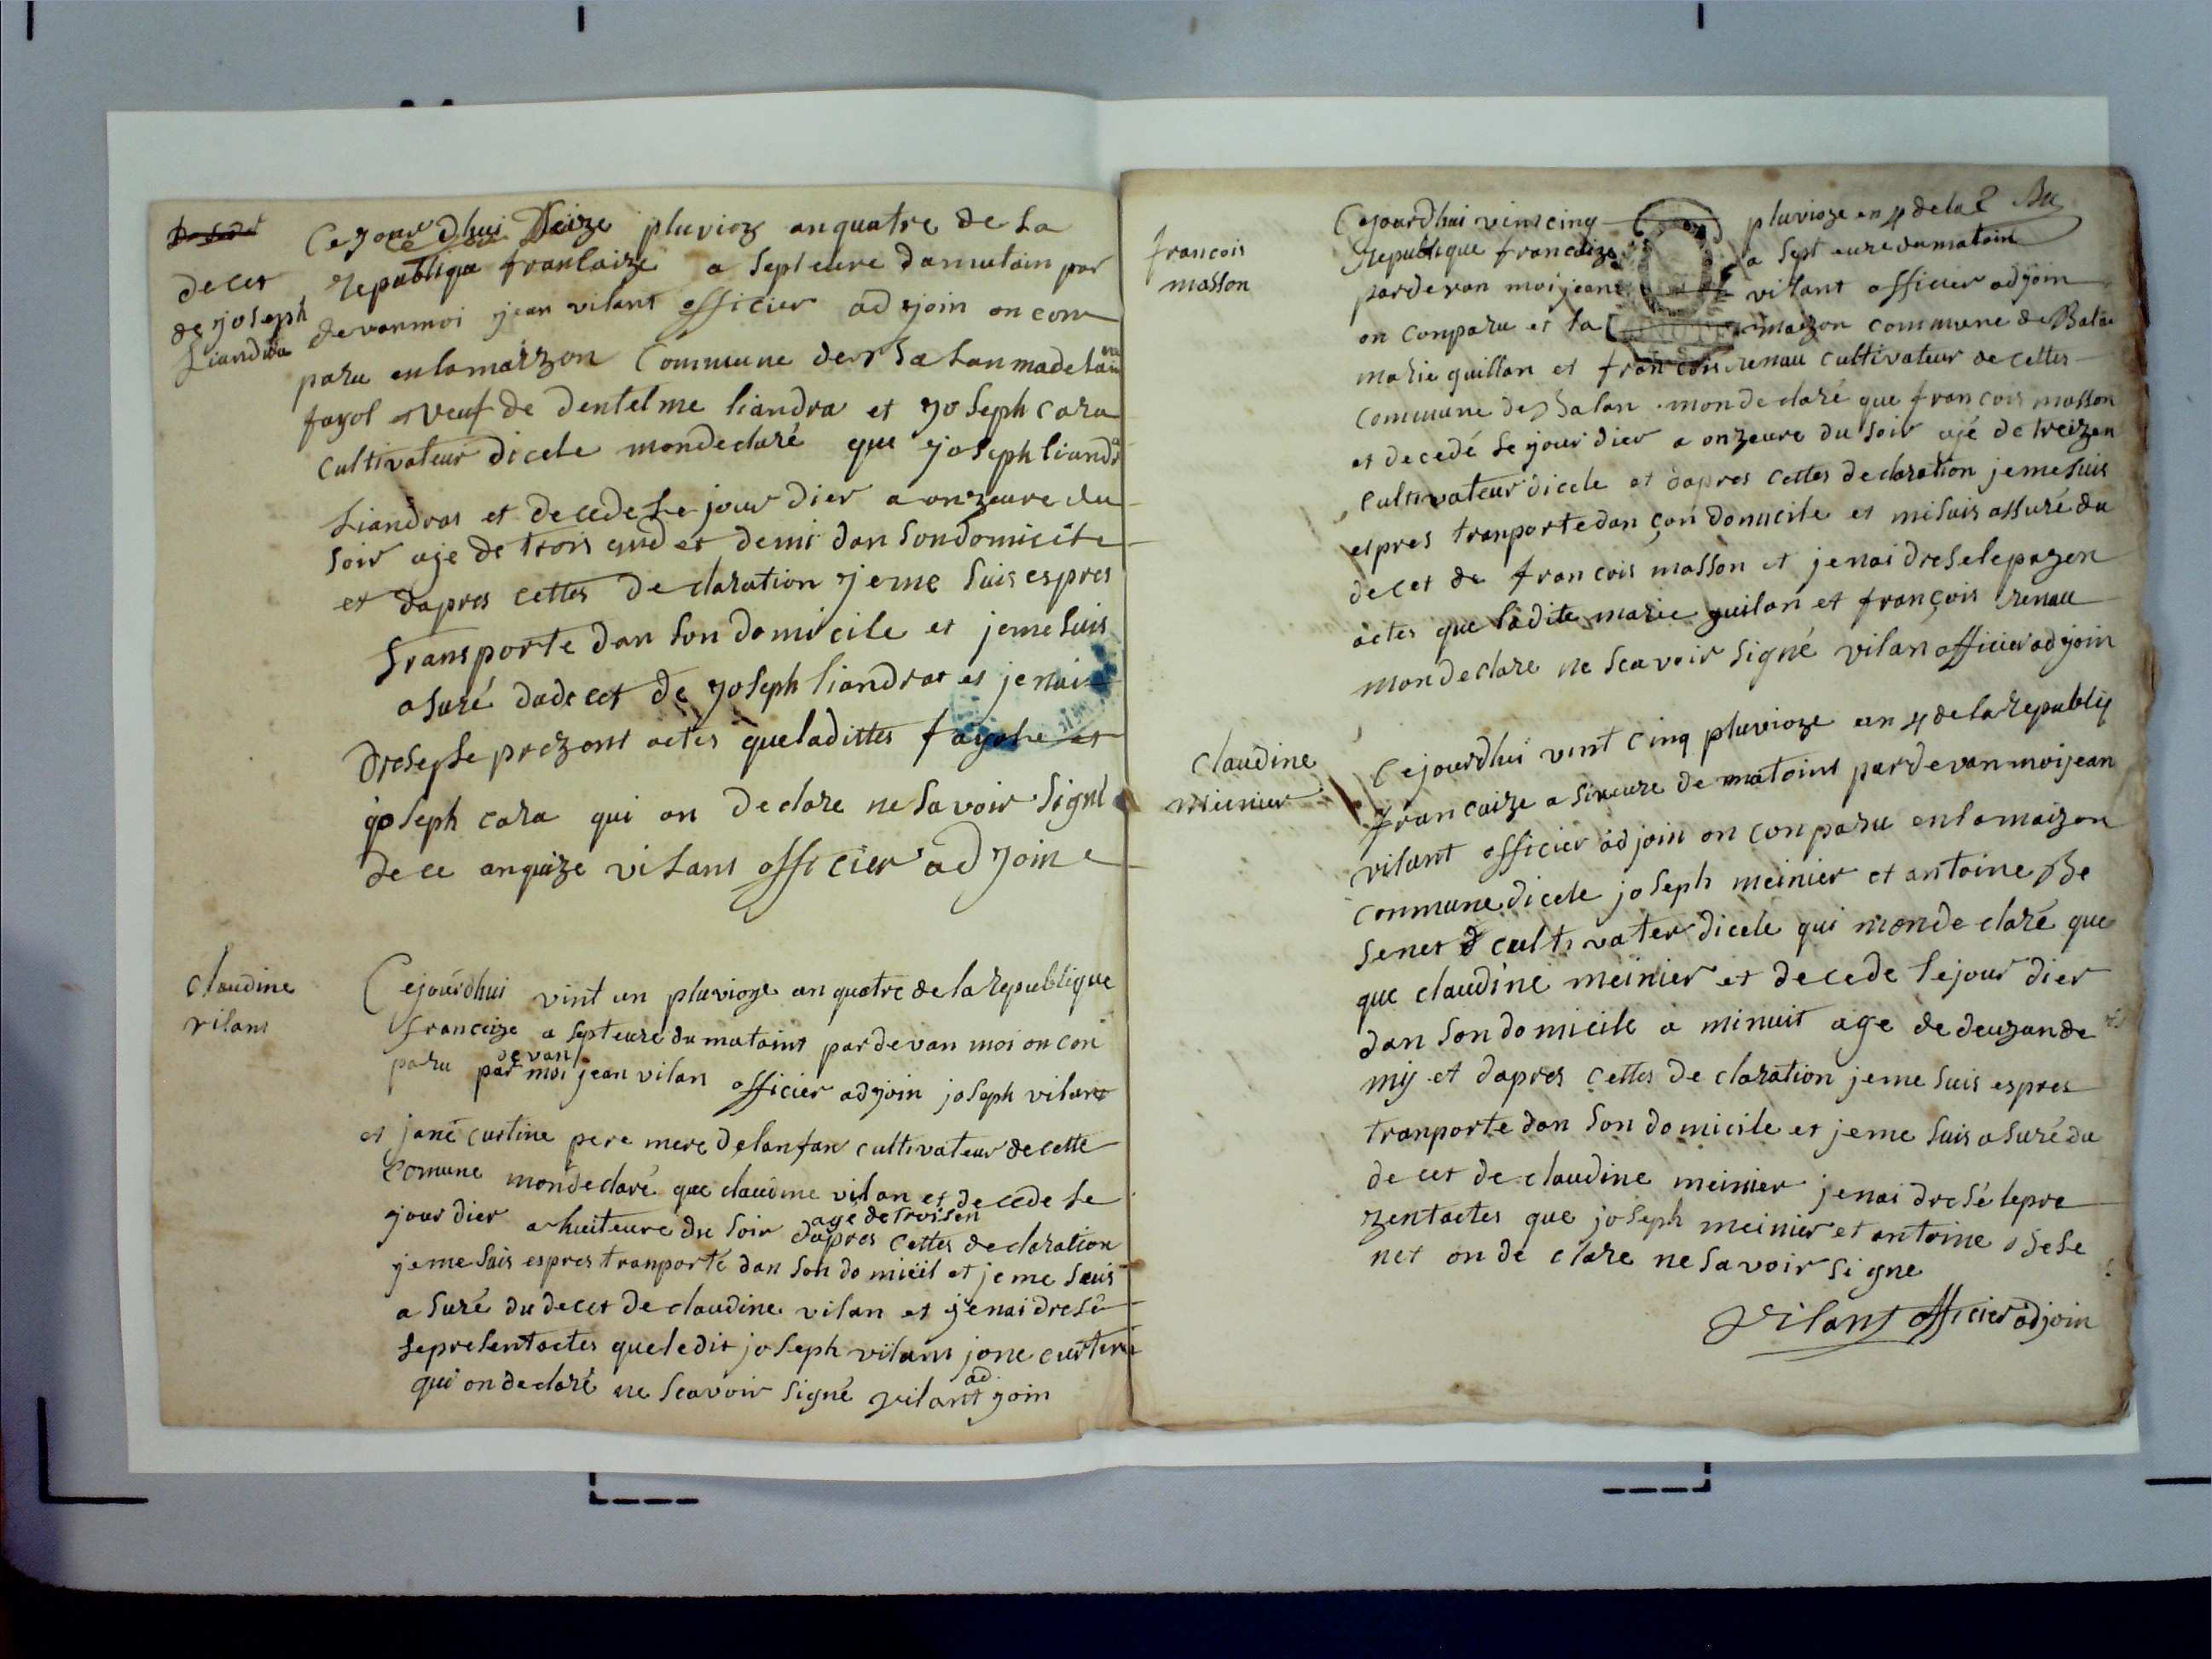 deces
de joseph
Liandra
Ce jourdhui Seize pluvioz anquatre de la
republique francaize a sept eure dumatain par
devanmoi jean vilant officier adjoin on com
paru enlamaizon Commune de Balan madelaine
fayol veuf de dentelme liandra et joseph cara
cultivateur dicele mondeclaré que joseph liandra
Liandras et decede le jour dier a onzeure du
soir aje de trois and et demi dan sondomicile
et dapres cettes declaration jeme suis espres
transporte dan son domicile et jeme suis
asuré dudecet de joseph liandrat et jenai
dresse le prezant actes queladittes fayolle et
joseph cara qui on declare ne savoir signé
de ce anquize vilant officier adjoin
claudine
vilant
Cejourdhui vint un pluvioze an quatre de la republique
francaize a septeure du mataint pardevan moi on con
paru par devan moi jean vilan officier adjoin joseph vilant
et jane curtine pere mere delanfan cultivateur de cette
Comune mondeclaré que claudine vilan et decede le
jour dier a huiteure du soir agé de troisen dapres cettes declaration
jeme suis espres tranporté dan son domiciil et jeme suis
a suré du decet de claudine vilan et jenai dresé
lepresentactes queledit joseph vilant jane curtine
qui on declaré ne scavoir signé vilant ad join
francois
masson
Cejourdhui vint cinq pluvioze an 4 de la
republique francaize a sept eure dumatain
pardevan moi jean vilant officier adjoin
on conparu et la maizon commune de Balan
marie guillan et francois renau cultivateur de cettes
commune de Balan mondeclaré que francois masson
et decedé le jour dier a onzeure du soir ajé de treizan
cultivateur dicele et dapres cettes declaration jemesuis
espres tranporte dan çon domicile et mesuis assuré du
decet de francois masson et jenai dreselepazen
actes que ladite marie guilan et françois renau
mondeclare ne scavoir signé vilan officier adjoin
claudine
meinier
Cejourdhui vint cinq pluvioze an 4 delarepubliq
francaize a sixeure de mataint pardevanmoijean
vilant officier adjoin on conparu enlamaizon
commune dicele joseph meinier et antoine Be
senet d cultivater dicele qui mondeclaré que
que claudine meinier et decede lejour dier
dan son domicile a minuit age de deuzande
my et dapres cettes declaration jeme suis espres
tranporte dan son domicile et jeme suis asuré du
decet de claudine meinier jenai dresé lepre
zentactes que joseph meinier et antoine besse
net on declare ne savoir signe
Vilant officier adjoin